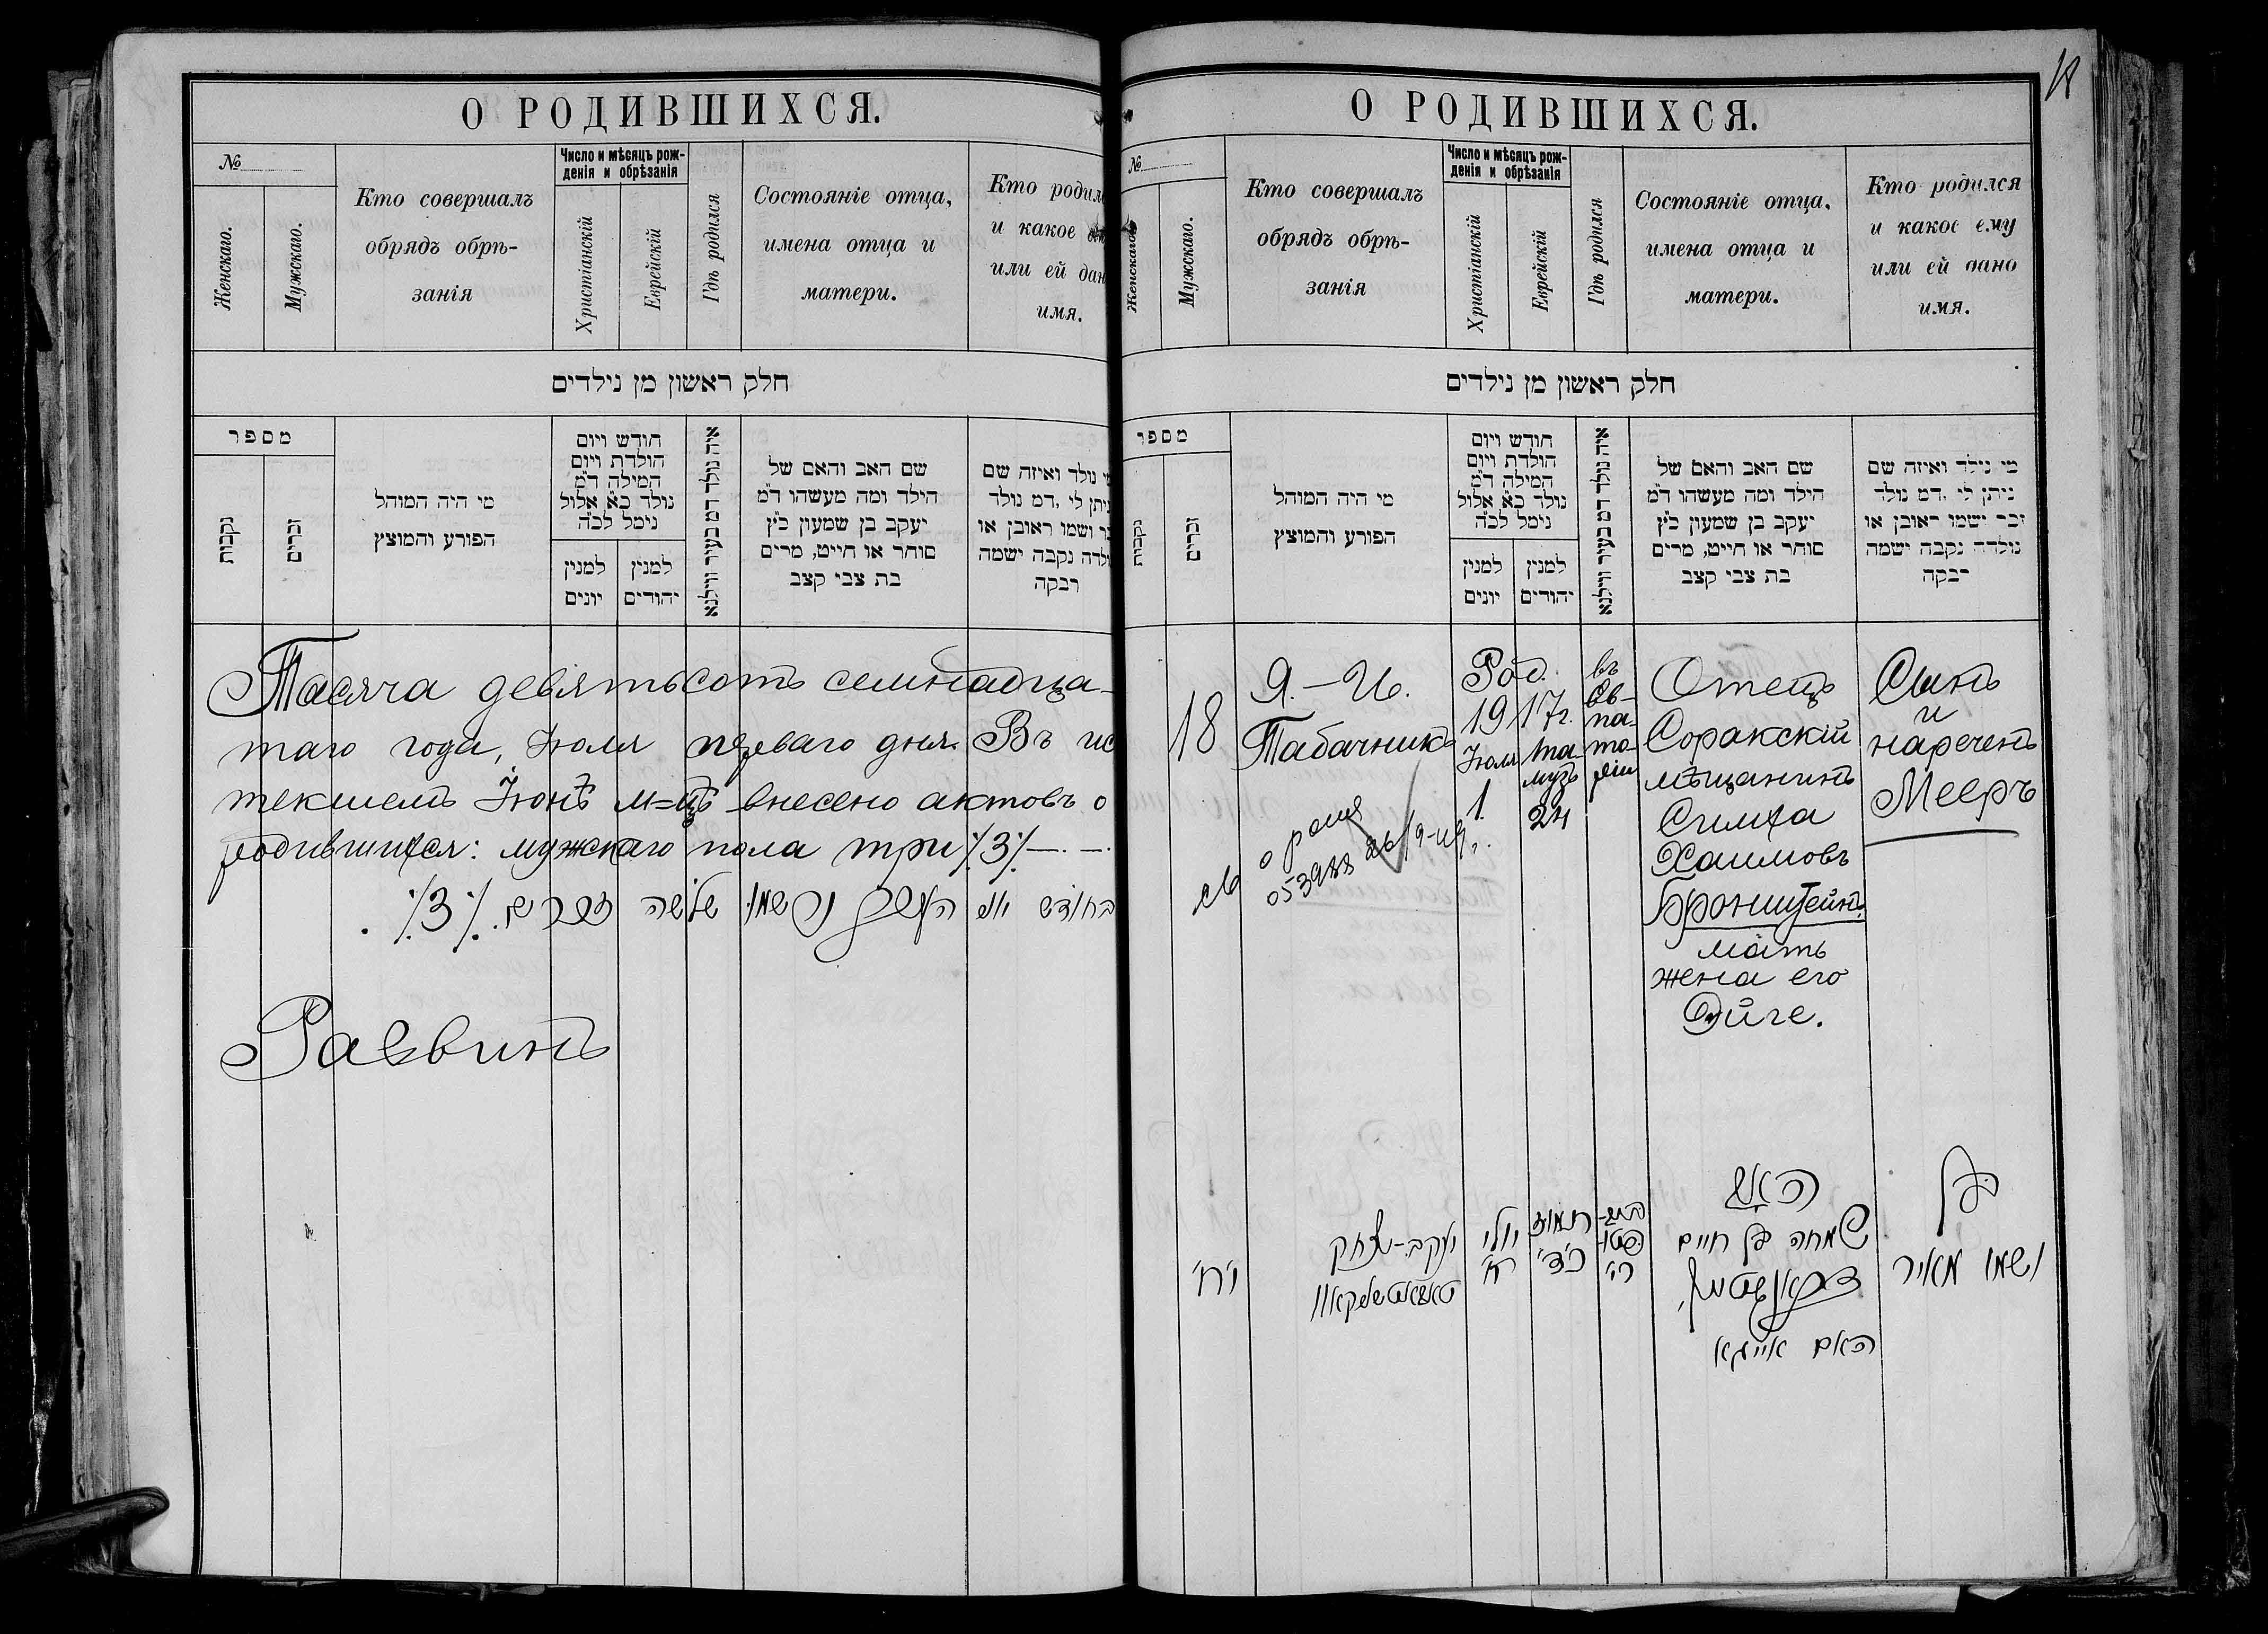 О РОДИВШИХСЯ.
№
Женскаго.
Мужскаго.
Кто совершалъ
обрядъ обрѣ-
занія
Число и мѣсяцъ рож-
денія и обрѣзанія
Христіанскій
Еврейскій
Гдѣ родился
Состояніе отца,
имена отца и
матери.
Кто родил
и какое
или ей дан
имя.
חלק ראשון מן נילדים
מספר
נקבות
זכרים
מי היה המוהל
הפורע והמוצץ
חודש ויום
הולדת ויום
המילה ד״מ
נולד כ״א אלול
נימל לכ״ה
למנין
יונים
למנין
יהודים
איה נולד ד״מ בעיר ווילנא
שם האב והאם של
הילד ומה מעשהו ד״מ
יעקב בן שמעון כ״ץ
סוחר או חייט, מרים
בת צבי קצב
מי נולד ואיזה שם
ניתן לי .דמ נולד
זכר ושמו ראובן או
נולדה נקבה ישמה
רבקה
Тысяча девятьсотъ семнадца-
таго года, Іюля перваго дня. Въ ис
текшемъ Іюнѣ м=цѣ внесено актовъ о
родившихся: мужскаго пола три ٪3٪ —. —.
בחודש יוני נרשמו שלשה זכרים. ٪3٪.
Раввинъ
18
О РОДИВШИХСЯ.
№
Женскаго
Мужскаго.
Кто совершалъ
обрядъ обрѣ-
занія
Число и мѣсяцъ рож-
денія и обрѣзанія
Христіанскій
Еврейскій
Гдѣ родился
Состояніе отца,
имена отца и
матери.
Кто родился
и какое ему
или ей дано
имя.
חלק ראשון מן נילדים
מספר
נקבות
זכרים
מי היה המוהל
הפורע והמוצץ
חודש ויום
הולדת ויום
המילה ד״מ
נולד כ״א אלול
נימל לכ״ה
למנין
יונים
למנין
יהודים
איה נולד ד״מ בעיר ווילנא
שם האב והאם של
הילד ומה מעשהו ד״מ
יעקב בן שמעון כ״ץ
סוחר או חייט, מרים
בת צבי קצב
מי נילד ואיזה שם
ניתן לי .דמ נולד
זכר ישמו ראובן או
נולדה נקבה ישמה
רבקה
18
Я.—И.
Табачникъ
Род.
1917г.
Іюля
1.
Та-
музъ
24
въ
Ев-
па-
то-
ріи
Отецъ
Сорокскій
мѣщанинъ
Симха
Хаимовъ
Бронштейнъ.
мать
жена его
Эйге.
Сынъ
и
нареченъ
Мееръ
י״ח
יעקב-יצחק
יולי
א׳
תמוז
כ״ד
האב
שמחה בן חיים
בראנשטיין,
האם אייגא
בן
ושמו מאיר